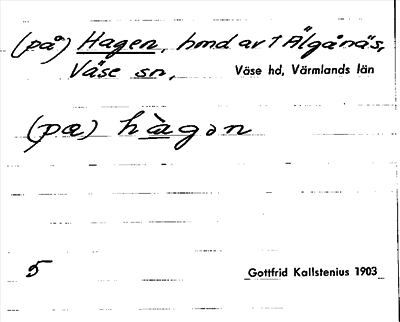 (på) Hagen, hmd av 1 Älgånäs,
Väse sn.
Väse hd, Värmlands län
(pɑ) hàgən
5
Gottfrid Kallstenius 1903